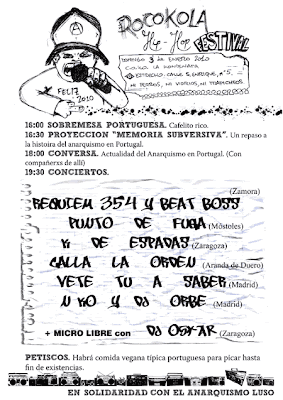 ROCOKOLA
Hip-Hop FESTIVAL
DOMINGO 3 DE ENERO 2010
C.O.K.O. LA
C/ ESTRECHO, CALLE S. ENRIQUE, Nº 5
NI PERROS, NI VIDRIOS, NI
FELIZ
2010
16:00 SOBREMESA PORTUGUESA. Cafelito rico.
16:30 PROYECCION "MEMORIA SUBVERSIVA". Un repaso a
la histoira del anarquismo en Portugal.
18:00 CONVERSA. Actualidad del Anarquismo en Portugal. (Con
compañerxs de allí)
19:30 CONCIERTOS.
(Zamora)
REQUIEM 354 Y BEAT BOSS
PUNTO DE FUGA (Móstoles)
K DE ESPADAS (Zaragoza)
CALLA LA ORDEN (Aranda de Duero)
VETE TU A SABER (Madrid)
U KO Y DJ ORBE (Madrid)
+ MICRO LIBRE con DJ OSKAR (Zaragoza)
PETISCOS. Habrá comida vegana típica portuguesa para picar hasta
fin de existencias.
EN SOLIDARIDAD CON EL ANARQUISMO LUSO